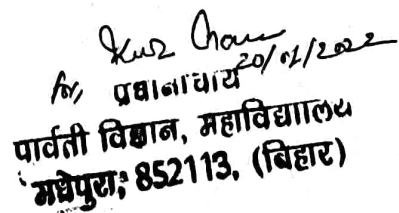 20/01/2022
for, प्रधानाचार्य
पार्वती विज्ञान, महाविद्याालय
मधेपुरा, 852113, (बिहार)